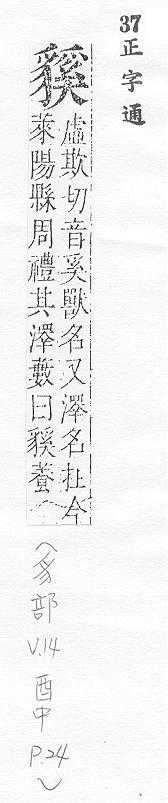 37正字通
貕
虛欺切音奚獸名又澤名在今
萊陽縣周禮其澤藪曰貕養
(豸部
V.14
酉中
P.24)